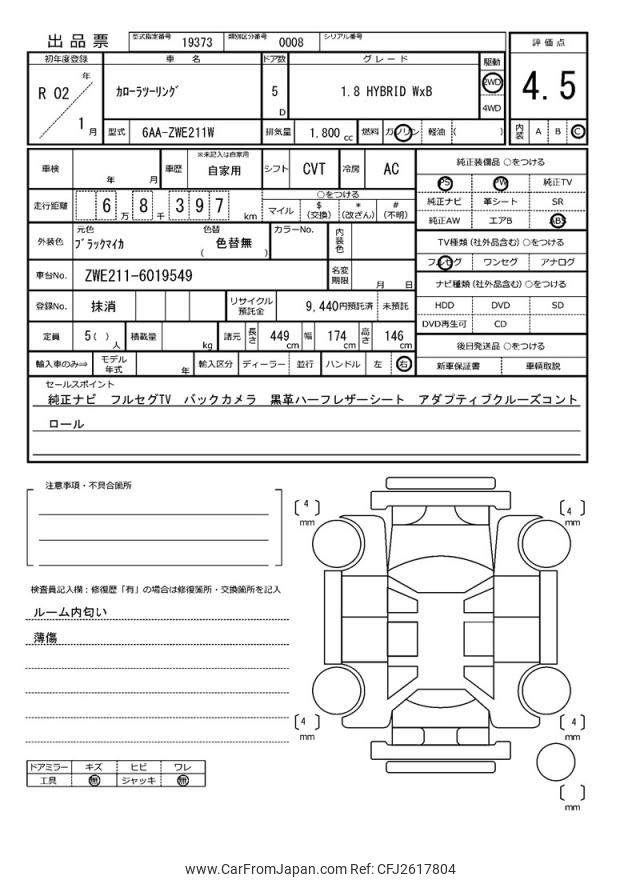 出品票 型式指定番号 19373 類別区分番号 0008 シリアル番号
評価点
初年度登録 車名 ドア数 グレード 駆動
R 02 年 1 月 カローラツーリング 5 D 1.8 HYBRID WxB 2WD 4WD
4.5
型式 6AA-ZWE211W 排気量 1.800 cc 燃料 ガソリン 軽油 ( )
内装 A B C
車検 年 月 車歴 ※未記入は自家用 自家用 シフト CVT 冷房 AC
純正装備品 ○をつける
PS PW 純正TV
純正ナビ 革シート SR
純正AW エアB ABS
走行距離 6 万 8 千 3 9 7 km
○をつける
マイル $ (交換) * (改ざん) # (不明)
外装色 元色 ブラックマイカ 色替 ( 色替無 ) カラーNo. 内装色
TV種類 (社外品含む) ○をつける
フルセグ ワンセグ アナログ
車台No. ZWE211-6019549 名変期限 月 日
ナビ種類 (社外品含む) ○をつける
HDD DVD SD
DVD再生可 CD
登録No. 抹消 リサイクル預託金 9,440円預託済 未預託
定員 5( ) 人 積載量 kg 諸元 長さ 449 cm 幅 174 cm 高さ 146 cm
後日発送品 ○をつける
新車保証書 車輌取説
輸入車のみ⇒ モデル年式 年 輸入区分 ディーラー 並行 ハンドル 左 右
セールスポイント
純正ナビ フルセグTV バックカメラ 黒革ハーフレザーシート アダプティブクルーズコント
ロール
注意事項・不具合箇所
検査員記入欄：修復歴「有」の場合は修復箇所・交換箇所を記入
ルーム内匂い
薄傷
[ 4 ] mm
[ 4 ] mm
[ 4 ] mm
[ 4 ] mm
[ ] mm
ドアミラー キズ ヒビ ワレ
工具 無 ジャッキ 無
www.CarFromJapan.com Ref: CFJ2617804